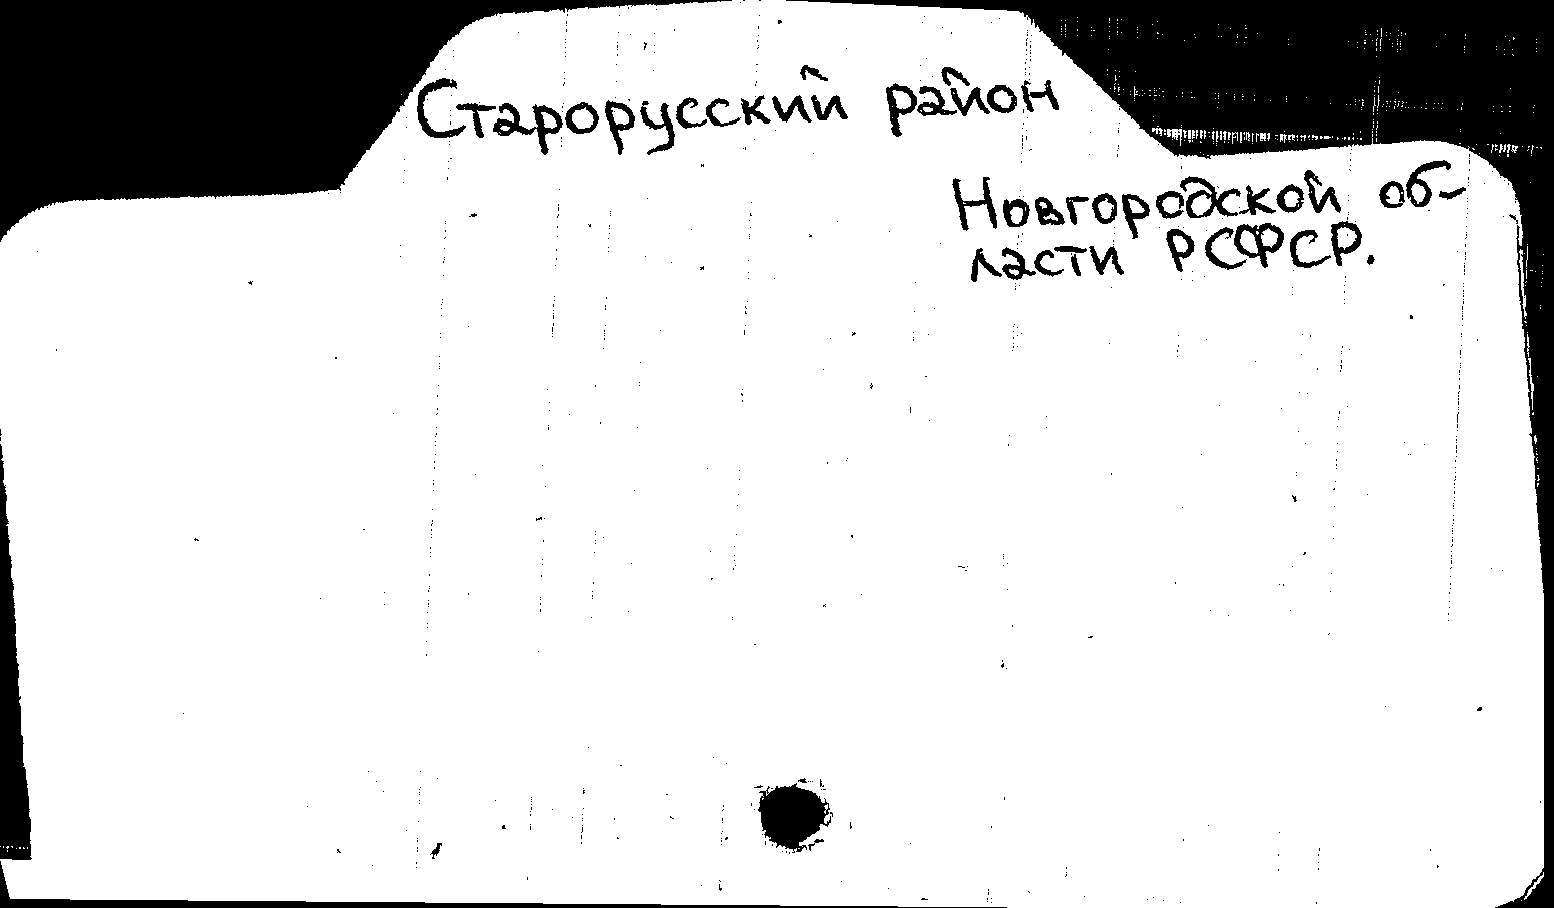 Старорусский район
Новгородской об-
ласти РСФСР.